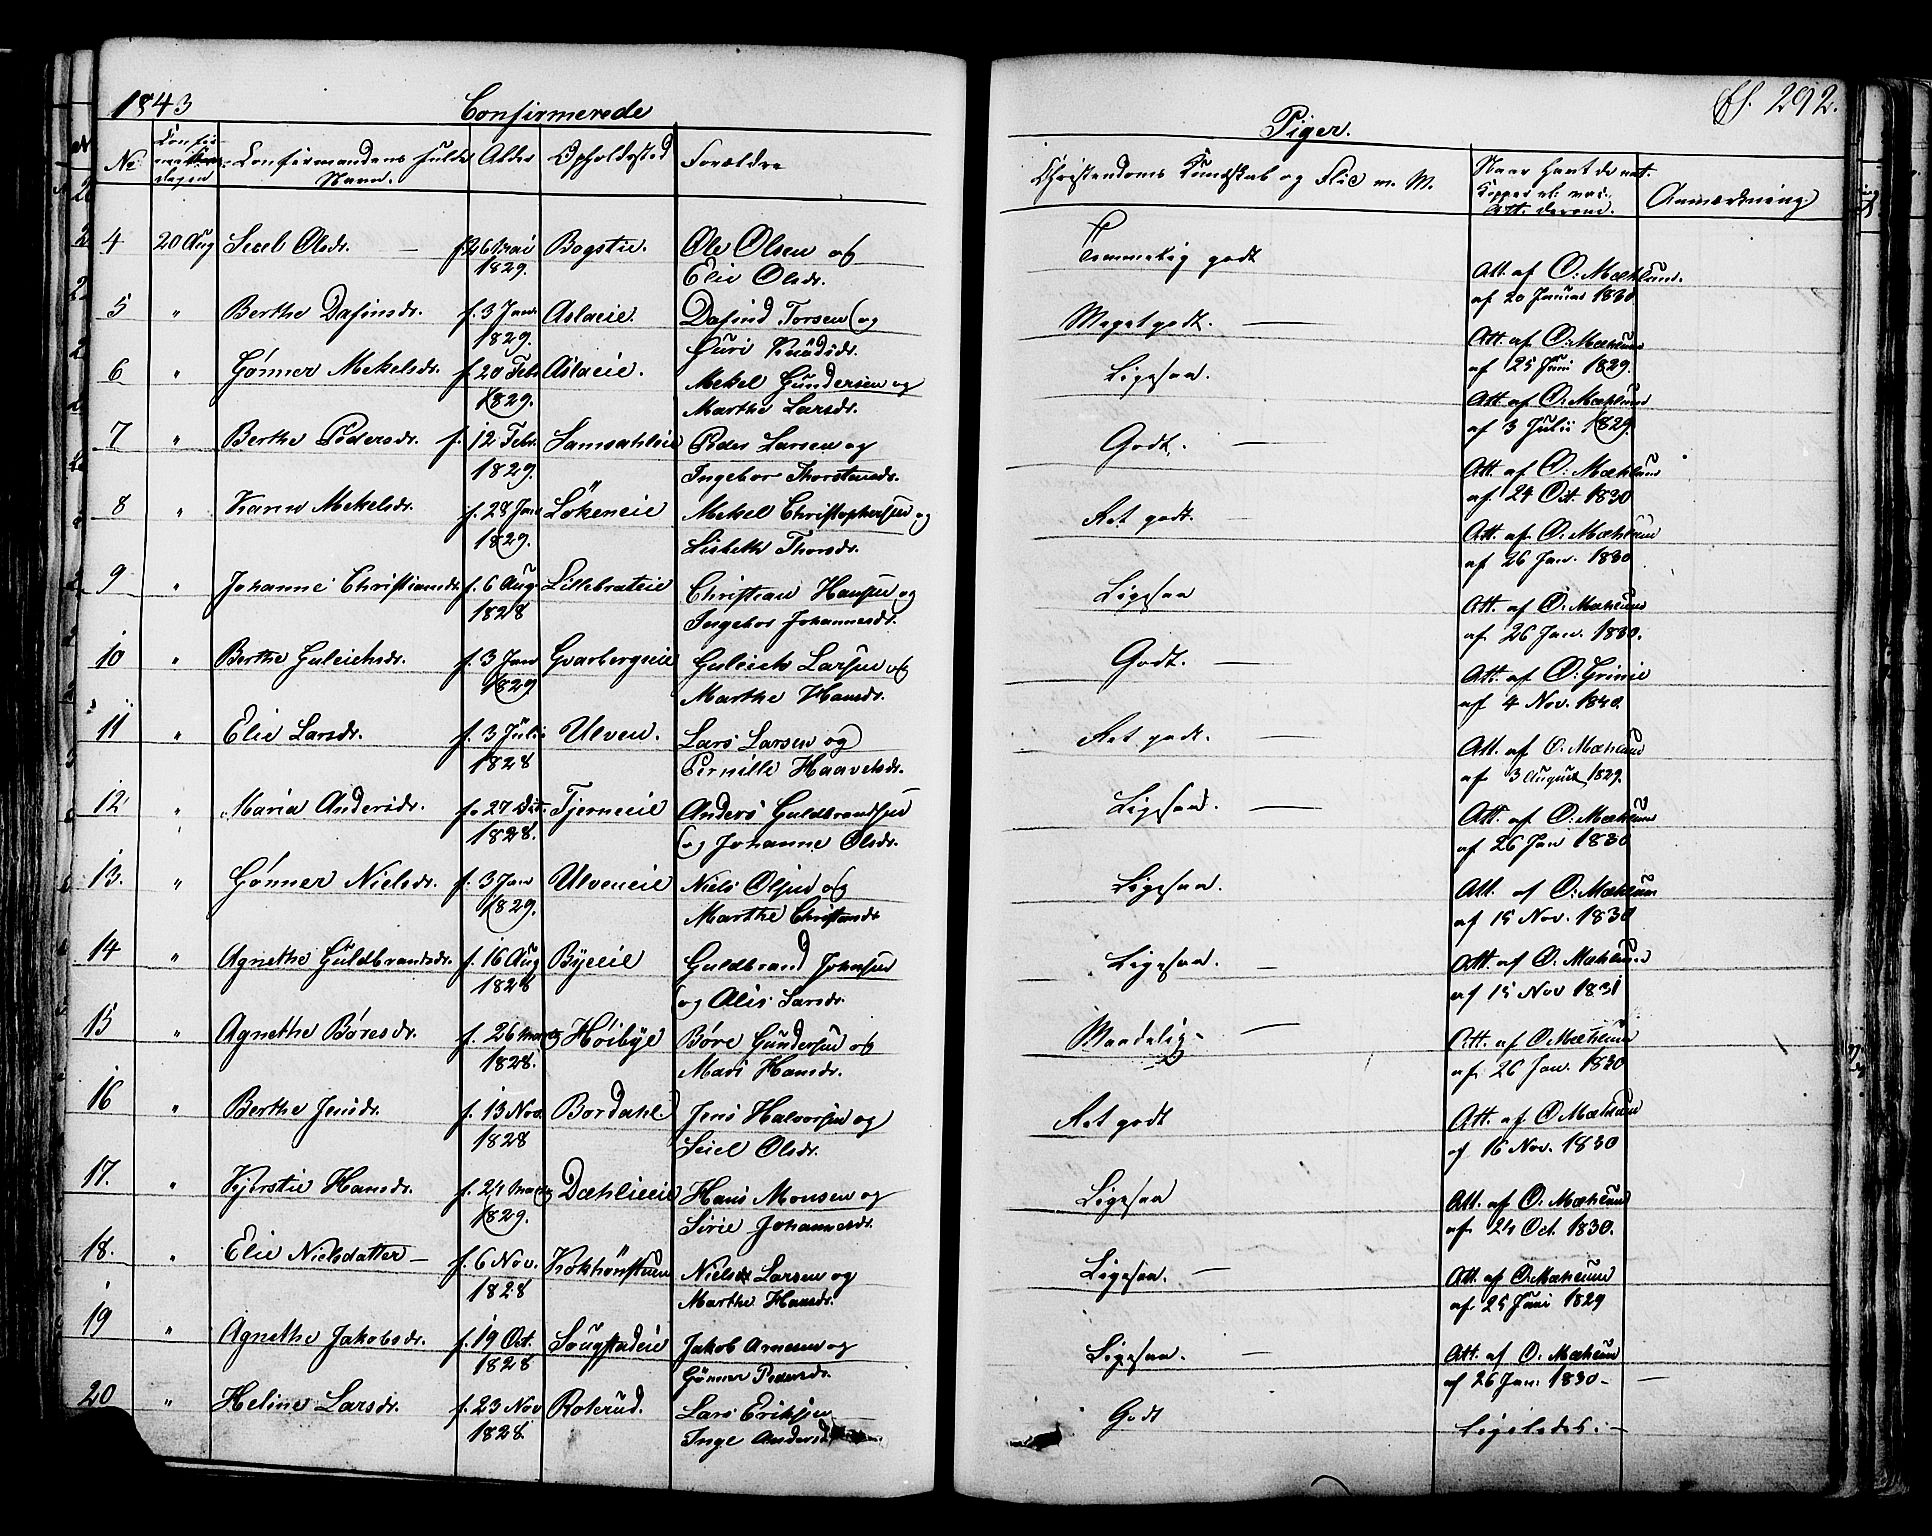 1843 Confirmerede
Piger. 292.
No Confirmations dagen Confirmandens fulde Navn. Alder Opholdssted Forældre
Christendoms Kundskab og Flid m. M. Naar havt de nat. Kopper el. vac. Att. derom. Anmærkning
4 20 Aug Siel Olsdr. — f. 26 Mai 1829. Bogstie. Ole Olsen og Elie Olsdr. Temmelig godt Att. af O: Mæhlum. af 20 Januar 1830
5 " Berthe Dafinsdr. f. 3 Jan. 1829. Aslaeie. Dafind Torsen og Guri Knudsdr. Meget godt. — Att. af O: Mæhlum af 25 Juni 1829.
6 " Gønner Mekelsdr. f. 20 Febr 1829. Aslaeie. Mekel Gundersen og Marthe Larsdr. Ligesaa. Att. af O: Mæhlum af 3 Julii 1829.
7 " Berthe Pedersdr. f. 12 Febr. 1829. Samsahleie Peder Larsen og Ingebor Thorstensdr. Godt. — Att. af O: Mæhlum af 24 Oct. 1830
8 " Karen Mekelsdr. f. 28 Jan 1829. Løkeneie Mekel Christophersen og Lisbeth Thorsdr. Ret godt. — Att. af O: Mæhlum af 26 Jan. 1830
9 " Johanne Christiansdr f. 6 Aug. 1828 Lillebrateie Christian Hansen og Ingebor Johannesdr. Ligesaa Att. af O: Mæhlum af 26 Jan. 1830.
10 " Berthe Guleichsdr. f. 3 Jan 1829 Gvarbergseie Guleich Larsen og Marthe Hansdr. Godt. — Att. af O: Grinie af 4 Nov. 1840.
11 " Elie Larsdr. f. 3 Juli 1828 Ulven. Lars Larsen og Pernille Haavelsdr. Ret godt. — Att. af O: Mæhlum af 3 August 1829.
12 " Maria Andersdr. f. 27 Dec. 1828. Tjerneeie Anders Guldbrandsen og Johanne Olsdr. Ligesaa. — Att. af O: Mæhlum af 26 Jan 1830
13. " Gønner Nielsdr. f. 3 Jan 1829. Ulveneie Niels Olsen og Marthe Christensdr Ligesaa. Att. af O: Mæhlum af 15 Nov. 1830
14 " Agnethe Guldbrandsdr. f. 16 Aug 1828 Byeeie Guldbrand Johnsen og Alis Larsdr. Ligesaa. — Att. af O: Mæhlum af 15 Nov 1831
15 " Agnethe Børesdr. f. 26 Marts 1828. Høibye Børe Gundersen og Mari Hansdr. Maadelig — Att. af O Mæhlum af 26 Jan. 1830
16 " Berthe Jensdr. f. 13 Nov. 1828 Bordahl Jens Halvorsen og Siel Olsdr. Ret godt Att. af O Mæhlum af 16 Nov. 1830
17. " Kjerstie Hansdr. f. 24 Marts 1829. Dæhlieeie Hans Monsen og Sirie Johannesdr. Ligesaa Att. af O: Mæhlum af 24 Oct 1830.
18. " Elie Nielsdatter — f. 6 Nov. 1828 Niels Larsen og Marthe Hansdr. Ligesaa. — Att. af O: Mæhlum af 25 Juni 1829
19 " Agnethe Jakobsdr. f. 19 Oct. 1828 Sougstadeie Jakob Arnesen og Gønner Pedersdr. Ligesaa. — Att. af O. Mæhlum af 26 Jan. 1830 —
20 " Heline Larsdr. f. 23 Nov 1828. Roterud. Lars Eriksen Inge Andersd Godt Ligeledes. —